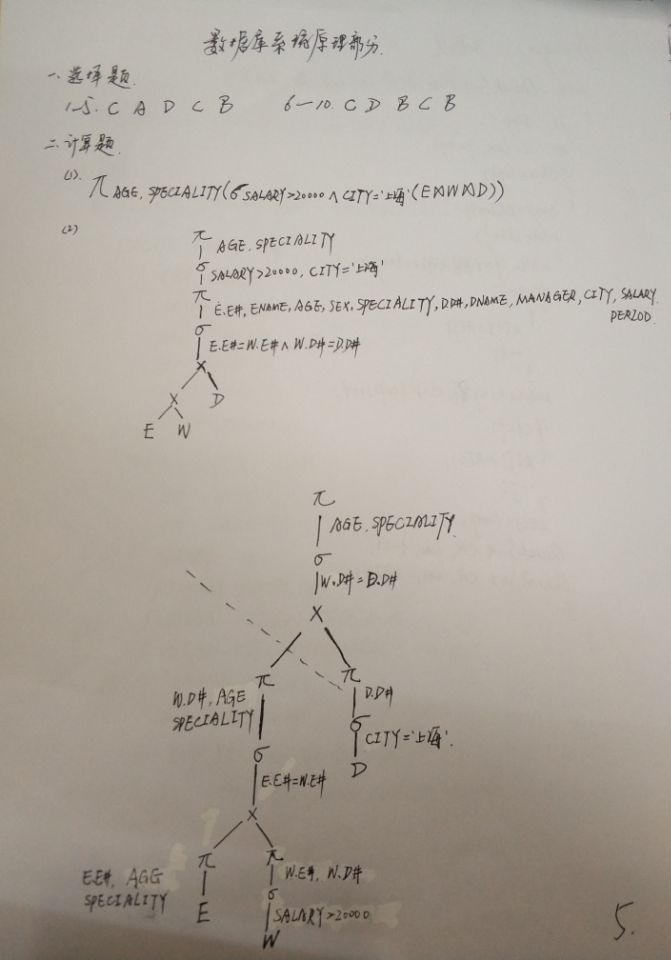 数据库系统原理部分.
一.选择题.
1-5. C A D C B 6—10. C D B C B
二.计算题.
(1). π AGE, SPECIALITY(σ SALARY>20000 ∧ CITY='上海'(E⋈W⋈D))
(2)
π
AGE, SPECIALITY
σ
SALARY>20000, CITY='上海'
π
E.E#, ENAME, AGE, SEX, SPECIALITY, D.D#, DNAME, MANAGER, CITY, SALARY.
PERIOD.
σ
E.E#=W.E# ∧ W.D#=D.D#
×
× D
E W
π
AGE, SPECIALITY.
σ
W.D# = D.D#
×
π π
W.D#, AGE D.D#
SPECIALITY σ
CITY='上海'.
σ D
E.E#=W.E#
×
π π
E.E#, AGE W.E#, W.D#
SPECIALITY σ
E SALARY>20000
W
5.